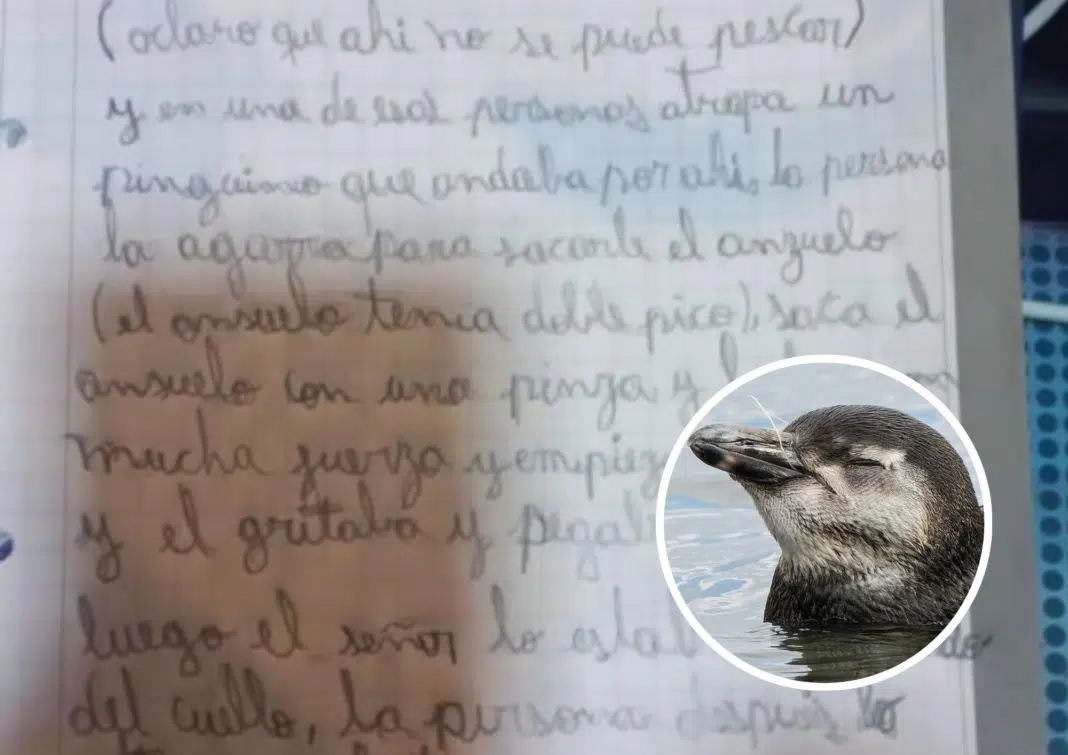 (oclaro que ahi no se puede pescar)
y en una de esas personas atrapa un
pinguino que andaba por ahi, la persona
la agarra para sacarle el anzuelo
(el ansuelo tenia doble pico), saca el
ansuelo con una pinza y
mucha fuerza y empiez
y el gritaba y pegab
luego el señor lo estab
del cuello, la persona después lo